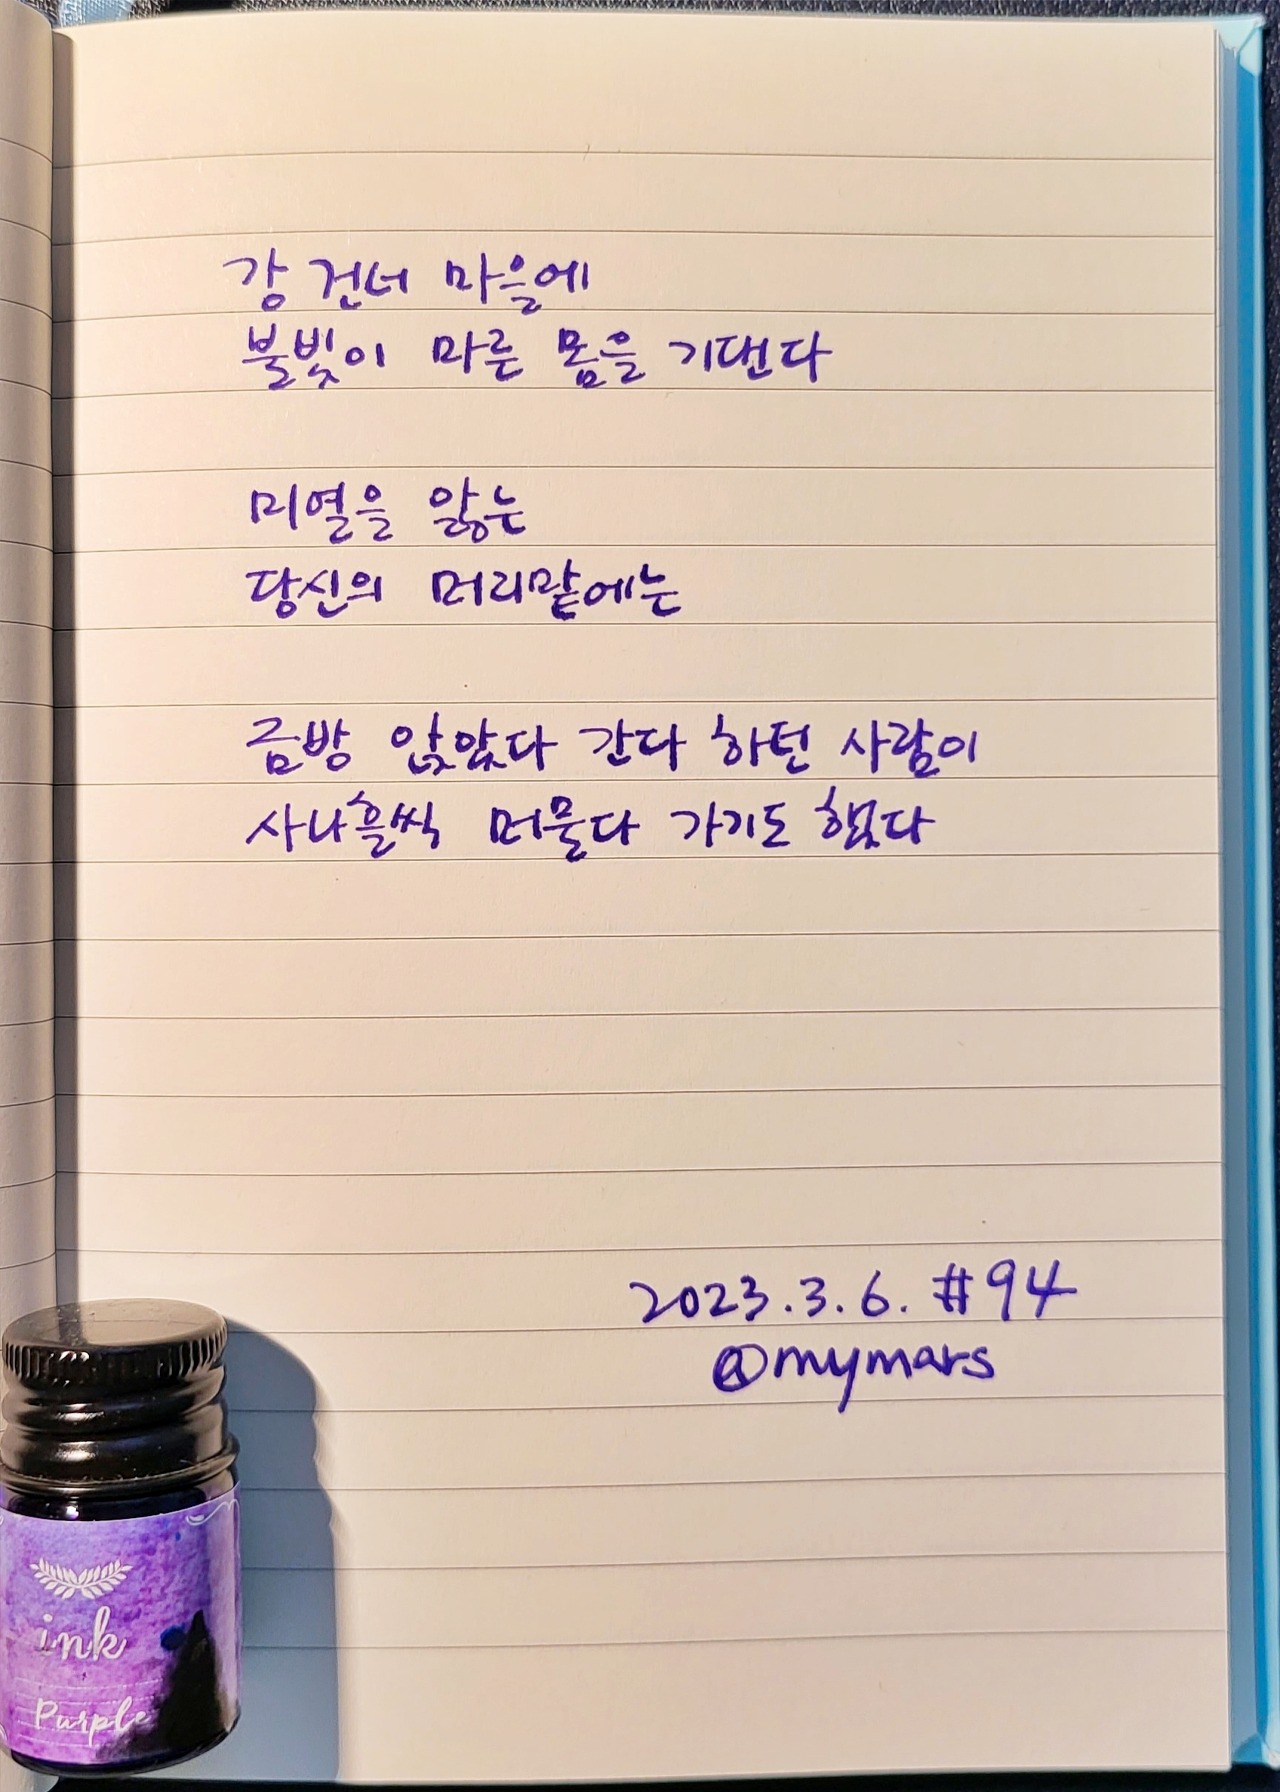 강 건너 마을에
불빛이 마른 몸을 기댄다
미열을 앓는
당신의 머리맡에는
금방 앉았다 간다 하던 사람이
사나흘씩 머물다 가기도 했다
2023.3.6. #94
@mymars
ink
Purple